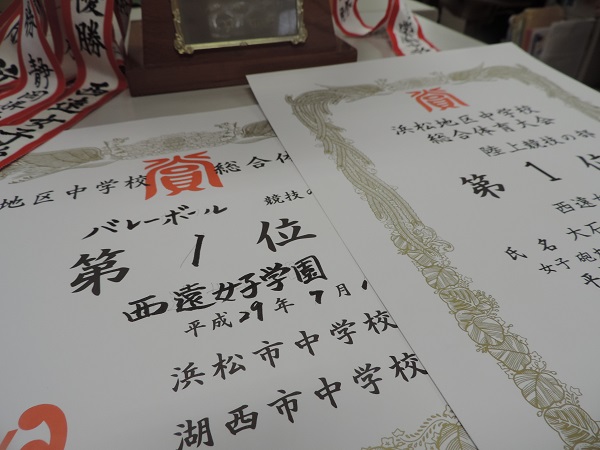 優勝
静
賞
地区中学校 総合体
バレーボール 競技の
第1位
西遠女子学園
平成29年7月
浜松市中学校
湖西市中学校
賞
浜松地区中学校
総合体育大会
陸上競技の部
第1位
西遠
氏名 大石
女子 砲
平